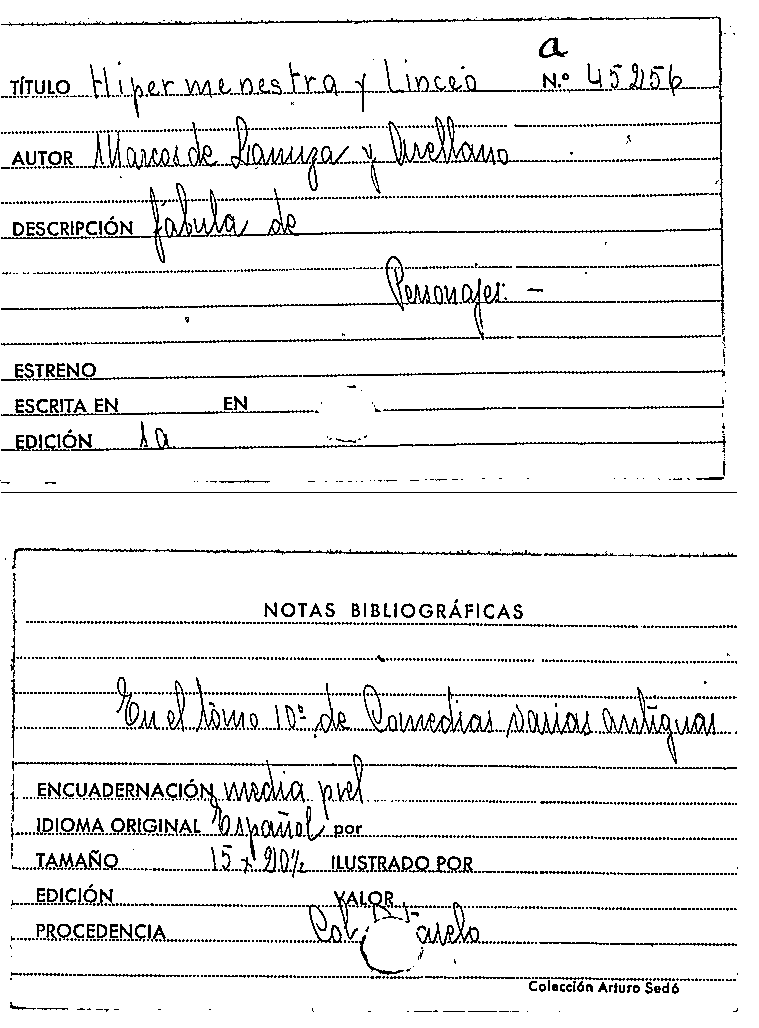 a
TÍTULO Hipermenestra y Linceo N.º 45256
AUTOR Marcos de Lanuza y Arellano
DESCRIPCIÓN fabula de
Personajes: —
ESTRENO
ESCRITA EN EN
EDICIÓN 1a
NOTAS BIBLIOGRÁFICAS
En el tomo 10º de Comedias varias antiguas
ENCUADERNACIÓN media piel
IDIOMA ORIGINAL Español por
TAMAÑO 15 x 20½ ILUSTRADO POR
EDICIÓN VALOR
PROCEDENCIA Col.
Colección Arturo Sedó